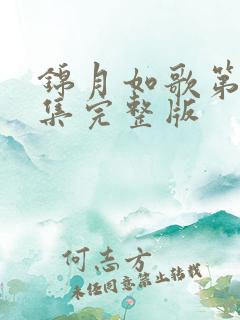 锦月如歌第
集完整版
何志方
未经同意禁止转载